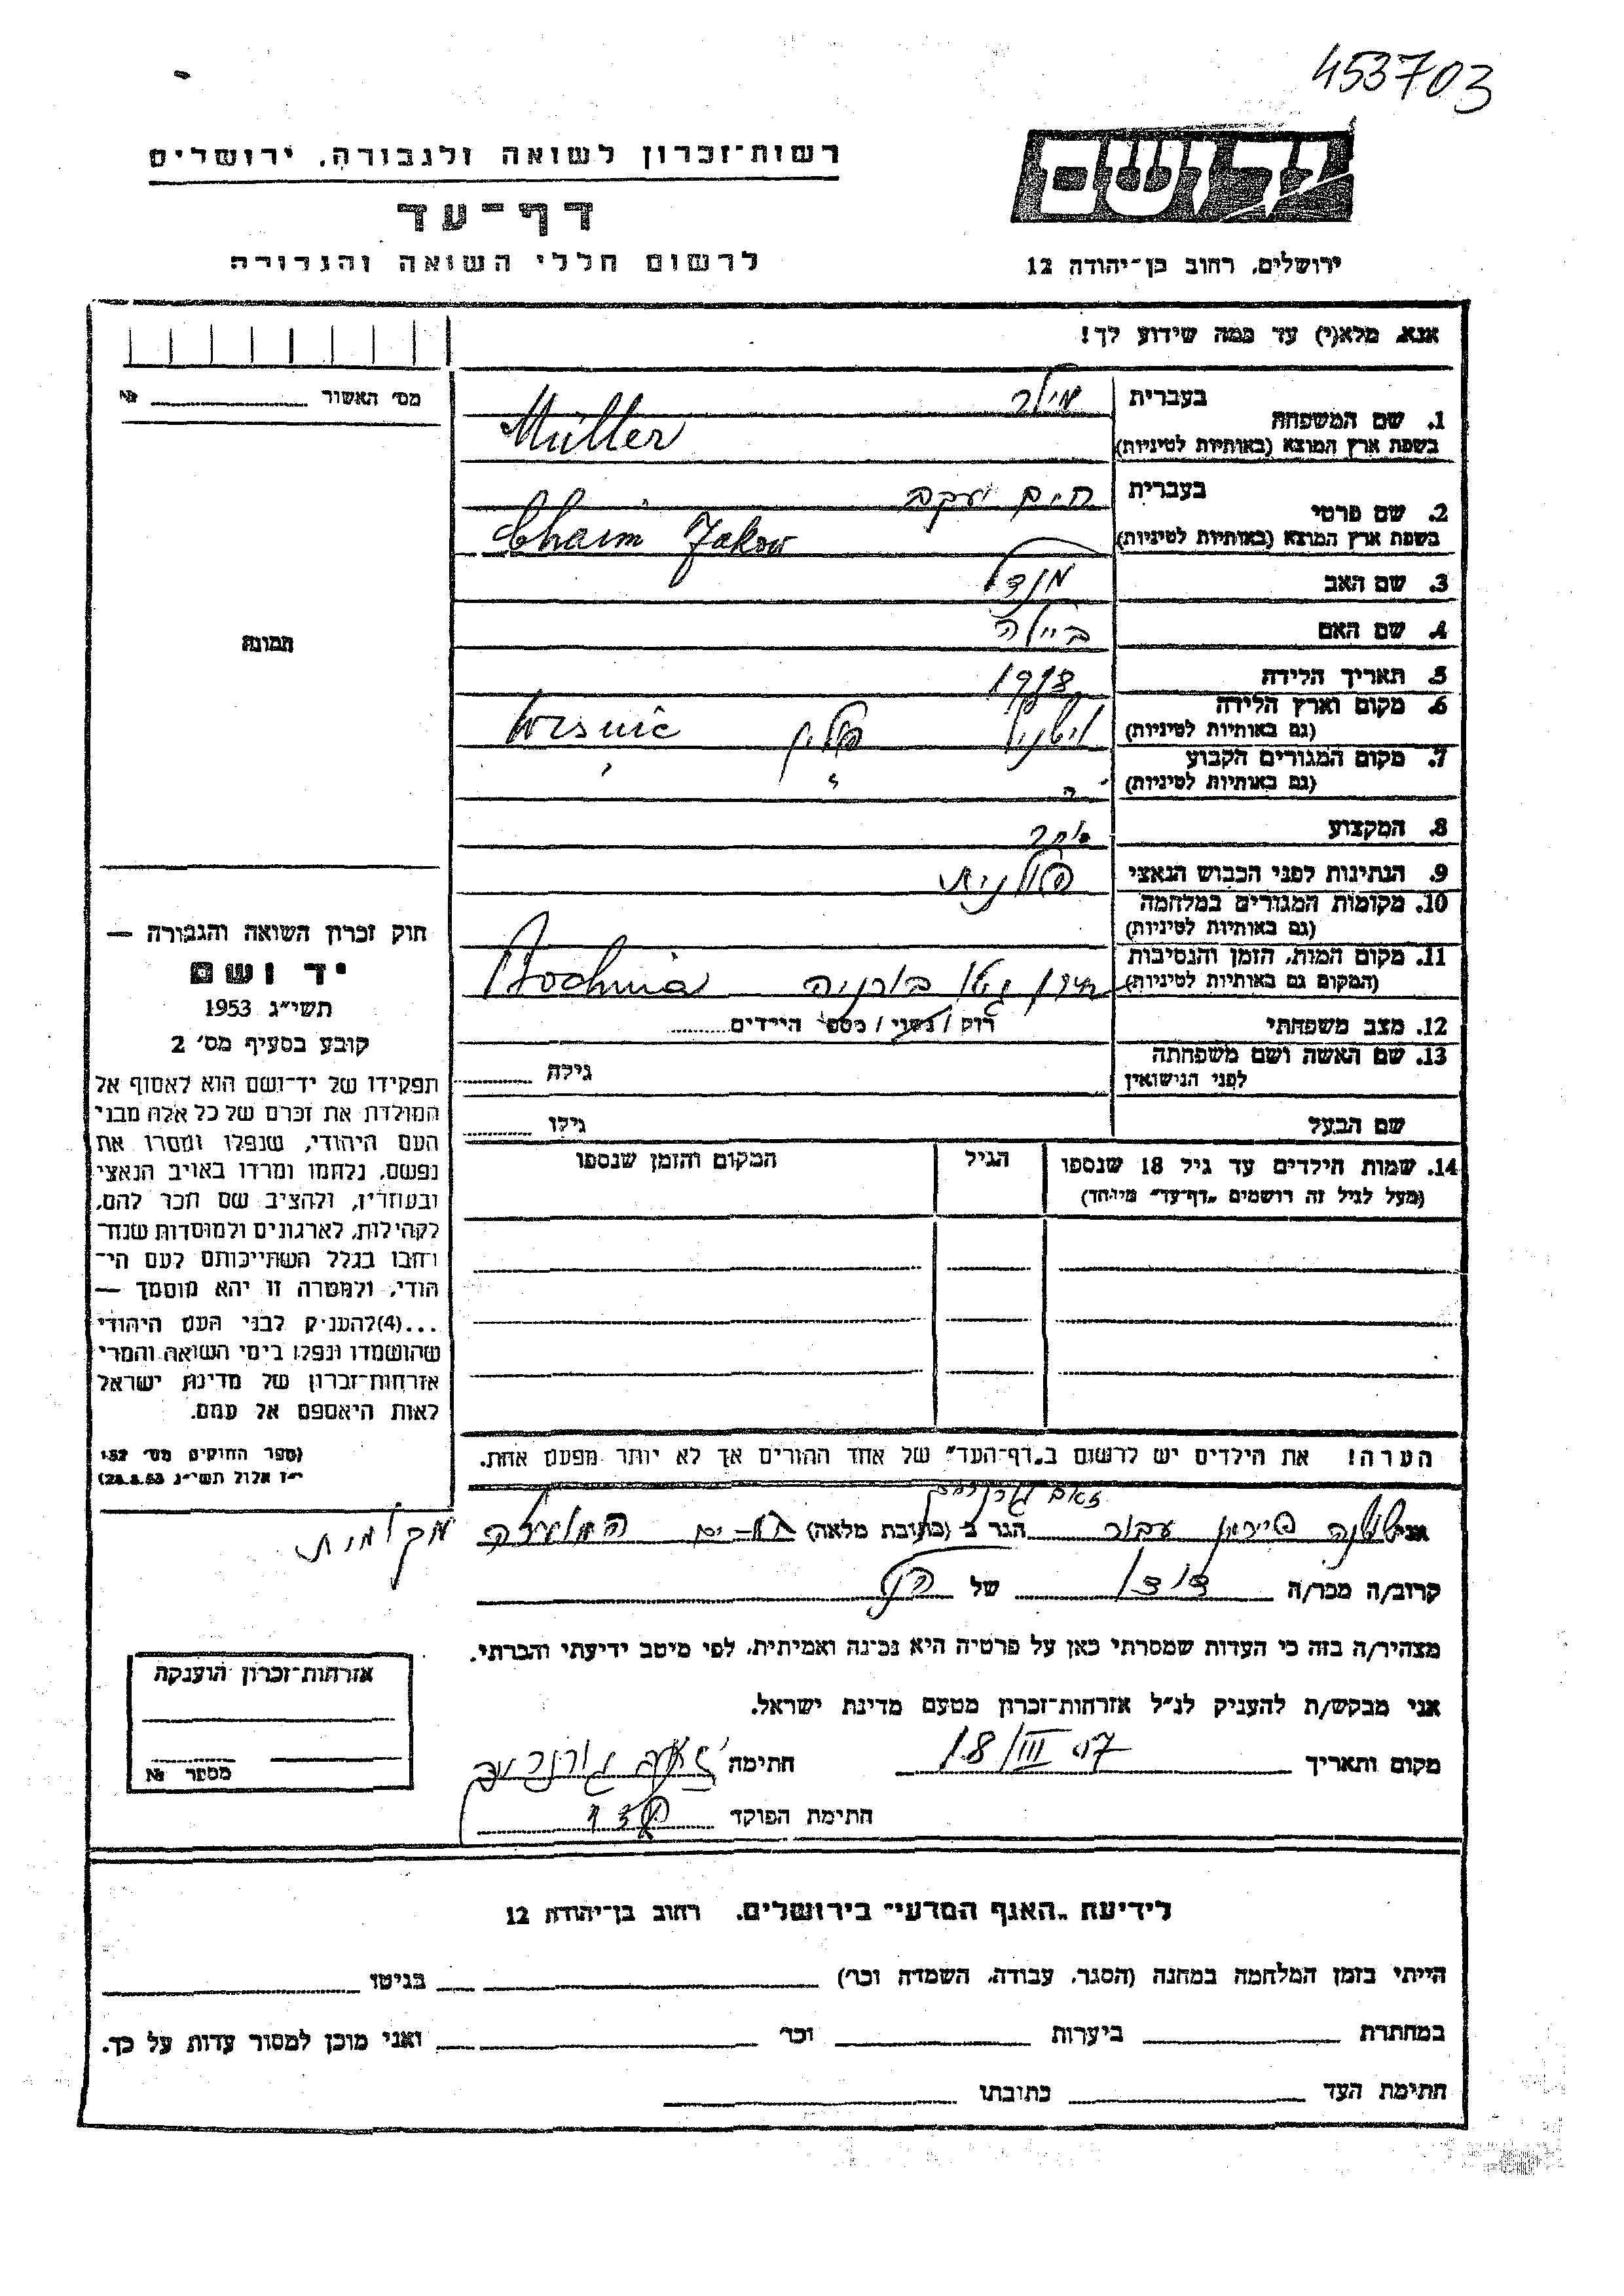 453703
יד ושם
רשות-זכרון לשואה ולגבורה, ירושלים
דף-עד
לרשום חללי השואה והגבורה
ירושלים, רחוב בן-יהודה 12
אנא, מלא(י) עד כמה שידוע לך!
מס' האשור № 
1. שם המשפחה
בעברית מילר
בשפת ארץ המוצא (באותיות לטיניות) Müller
2. שם פרטי
בעברית חיים יעקב
בשפת ארץ המוצא (באותיות לטיניות) Chaim Jakow
3. שם האב מנדל
4. שם האם ביילה
תמונה
5. תאריך הלידה 1918
6. מקום וארץ הלידה
(גם באותיות לטיניות) וישניץ פולין
7. מקום המגורים הקבוע
(גם באותיות לטיניות) " " "
8. המקצוע
9. הנתינות לפני הכבוש הנאצי פולנית
10. מקומות המגורים במלחמה
(גם באותיות לטיניות)
11. מקום המות, הזמן והנסיבות
(המקום גם באותיות לטיניות) גטו בוכניה Bochnia
12. מצב משפחתי רוק / נשוי / מספר הילדים
13. שם האשה ושם משפחתה
לפני הנישואין גילה
שם הבעל גילו
14. שמות הילדים עד גיל 18 שנספו
(מעל לגיל זה רושמים "דף-עד" מיוחד)
הגיל
המקום והזמן שנספו
חוק זכרון השואה והגבורה —
יד ושם
תשי"ג 1953
קובע בסעיף מס' 2
תפקידו של יד-ושם הוא לאסוף אל
המולדת את זכרם של כל אלה מבני
העם היהודי, שנפלו ומסרו את
נפשם, נלחמו ומרדו באויב הנאצי
ובעוזריו, ולהציב שם וזכר להם,
לקהילות, לארגונים ולמוסדות שנח-
רבו בגלל השתייכותם לעם הי-
הודי, ולמטרה זו יהא מוסמך —
...(4) להעניק לבני העם היהודי
שהושמדו ונפלו בימי השואה והמרי
אזרחות-זכרון של מדינת ישראל
לאות היאספם אל עמם.
(ספר החוקים מס' 132
י"ז אלול תשי"ג 28.8.53)
הערה! את הילדים יש לרשום ב"דף-העד" של אחד ההורים אך לא יותר מפעם אחת.
אני שושנה עבור הגר ב- (כתובת מלאה) בת-ים
קרוב/ה מכר/ה דודו של הנ"ל
מצהיר/ה בזה כי העדות שמסרתי כאן על פרטיה היא נכונה ואמיתית, לפי מיטב ידיעתי והכרתי.
אני מבקש/ת להעניק לנ"ל אזרחות-זכרון מטעם מדינת ישראל.
מקום ותאריך 18/III 07 חתימה
חתימת הפוקד
אזרחות-זכרון הוענקה
מספר №
לידיעת "האגף המדעי" בירושלים, רחוב בן-יהודה 12
הייתי בזמן המלחמה במחנה (הסגר, עבודה, השמדה וכו') בגיטו
במחתרת ביערות וכו' ואני מוכן למסור עדות על כך.
חתימת העד כתובתו